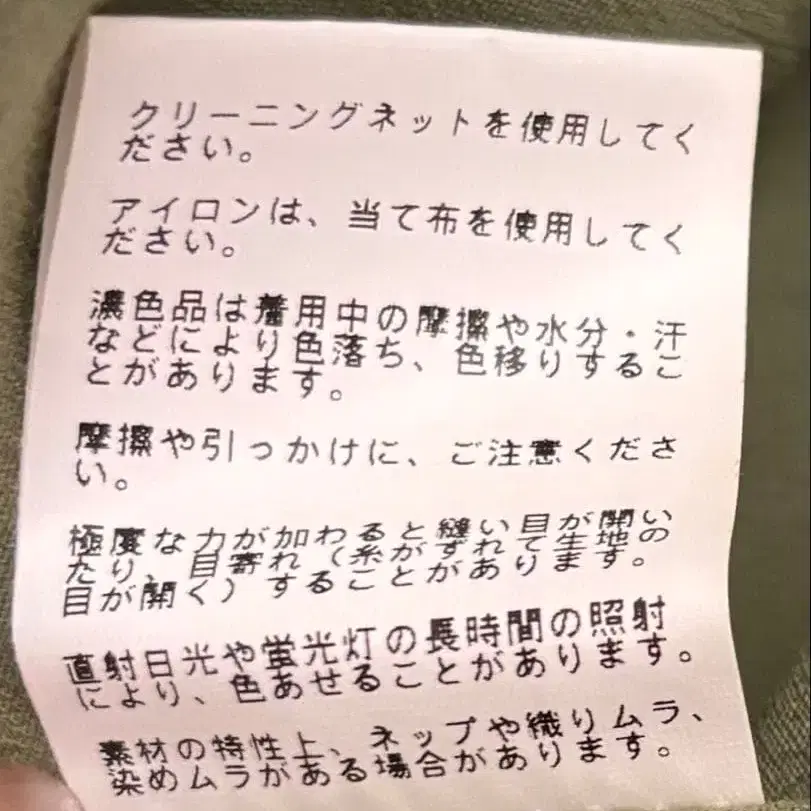 クリーニングネットを使用してく
ださい。
アイロンは、当て布を使用してく
ださい。
濃色品は着用中の摩擦や水分・汗
などにより色落ち、色移りするこ
とがあります。
摩擦や引っかけに、ご注意くださ
い。
極度な力が加わると縫い目が開い
たり、目寄れ（糸がずれて生地の
目が開く）することがあります。
直射日光や蛍光灯の長時間の照射
により、色あせることがあります。
素材の特性上、ネップや織りムラ、
染めムラがある場合があります。